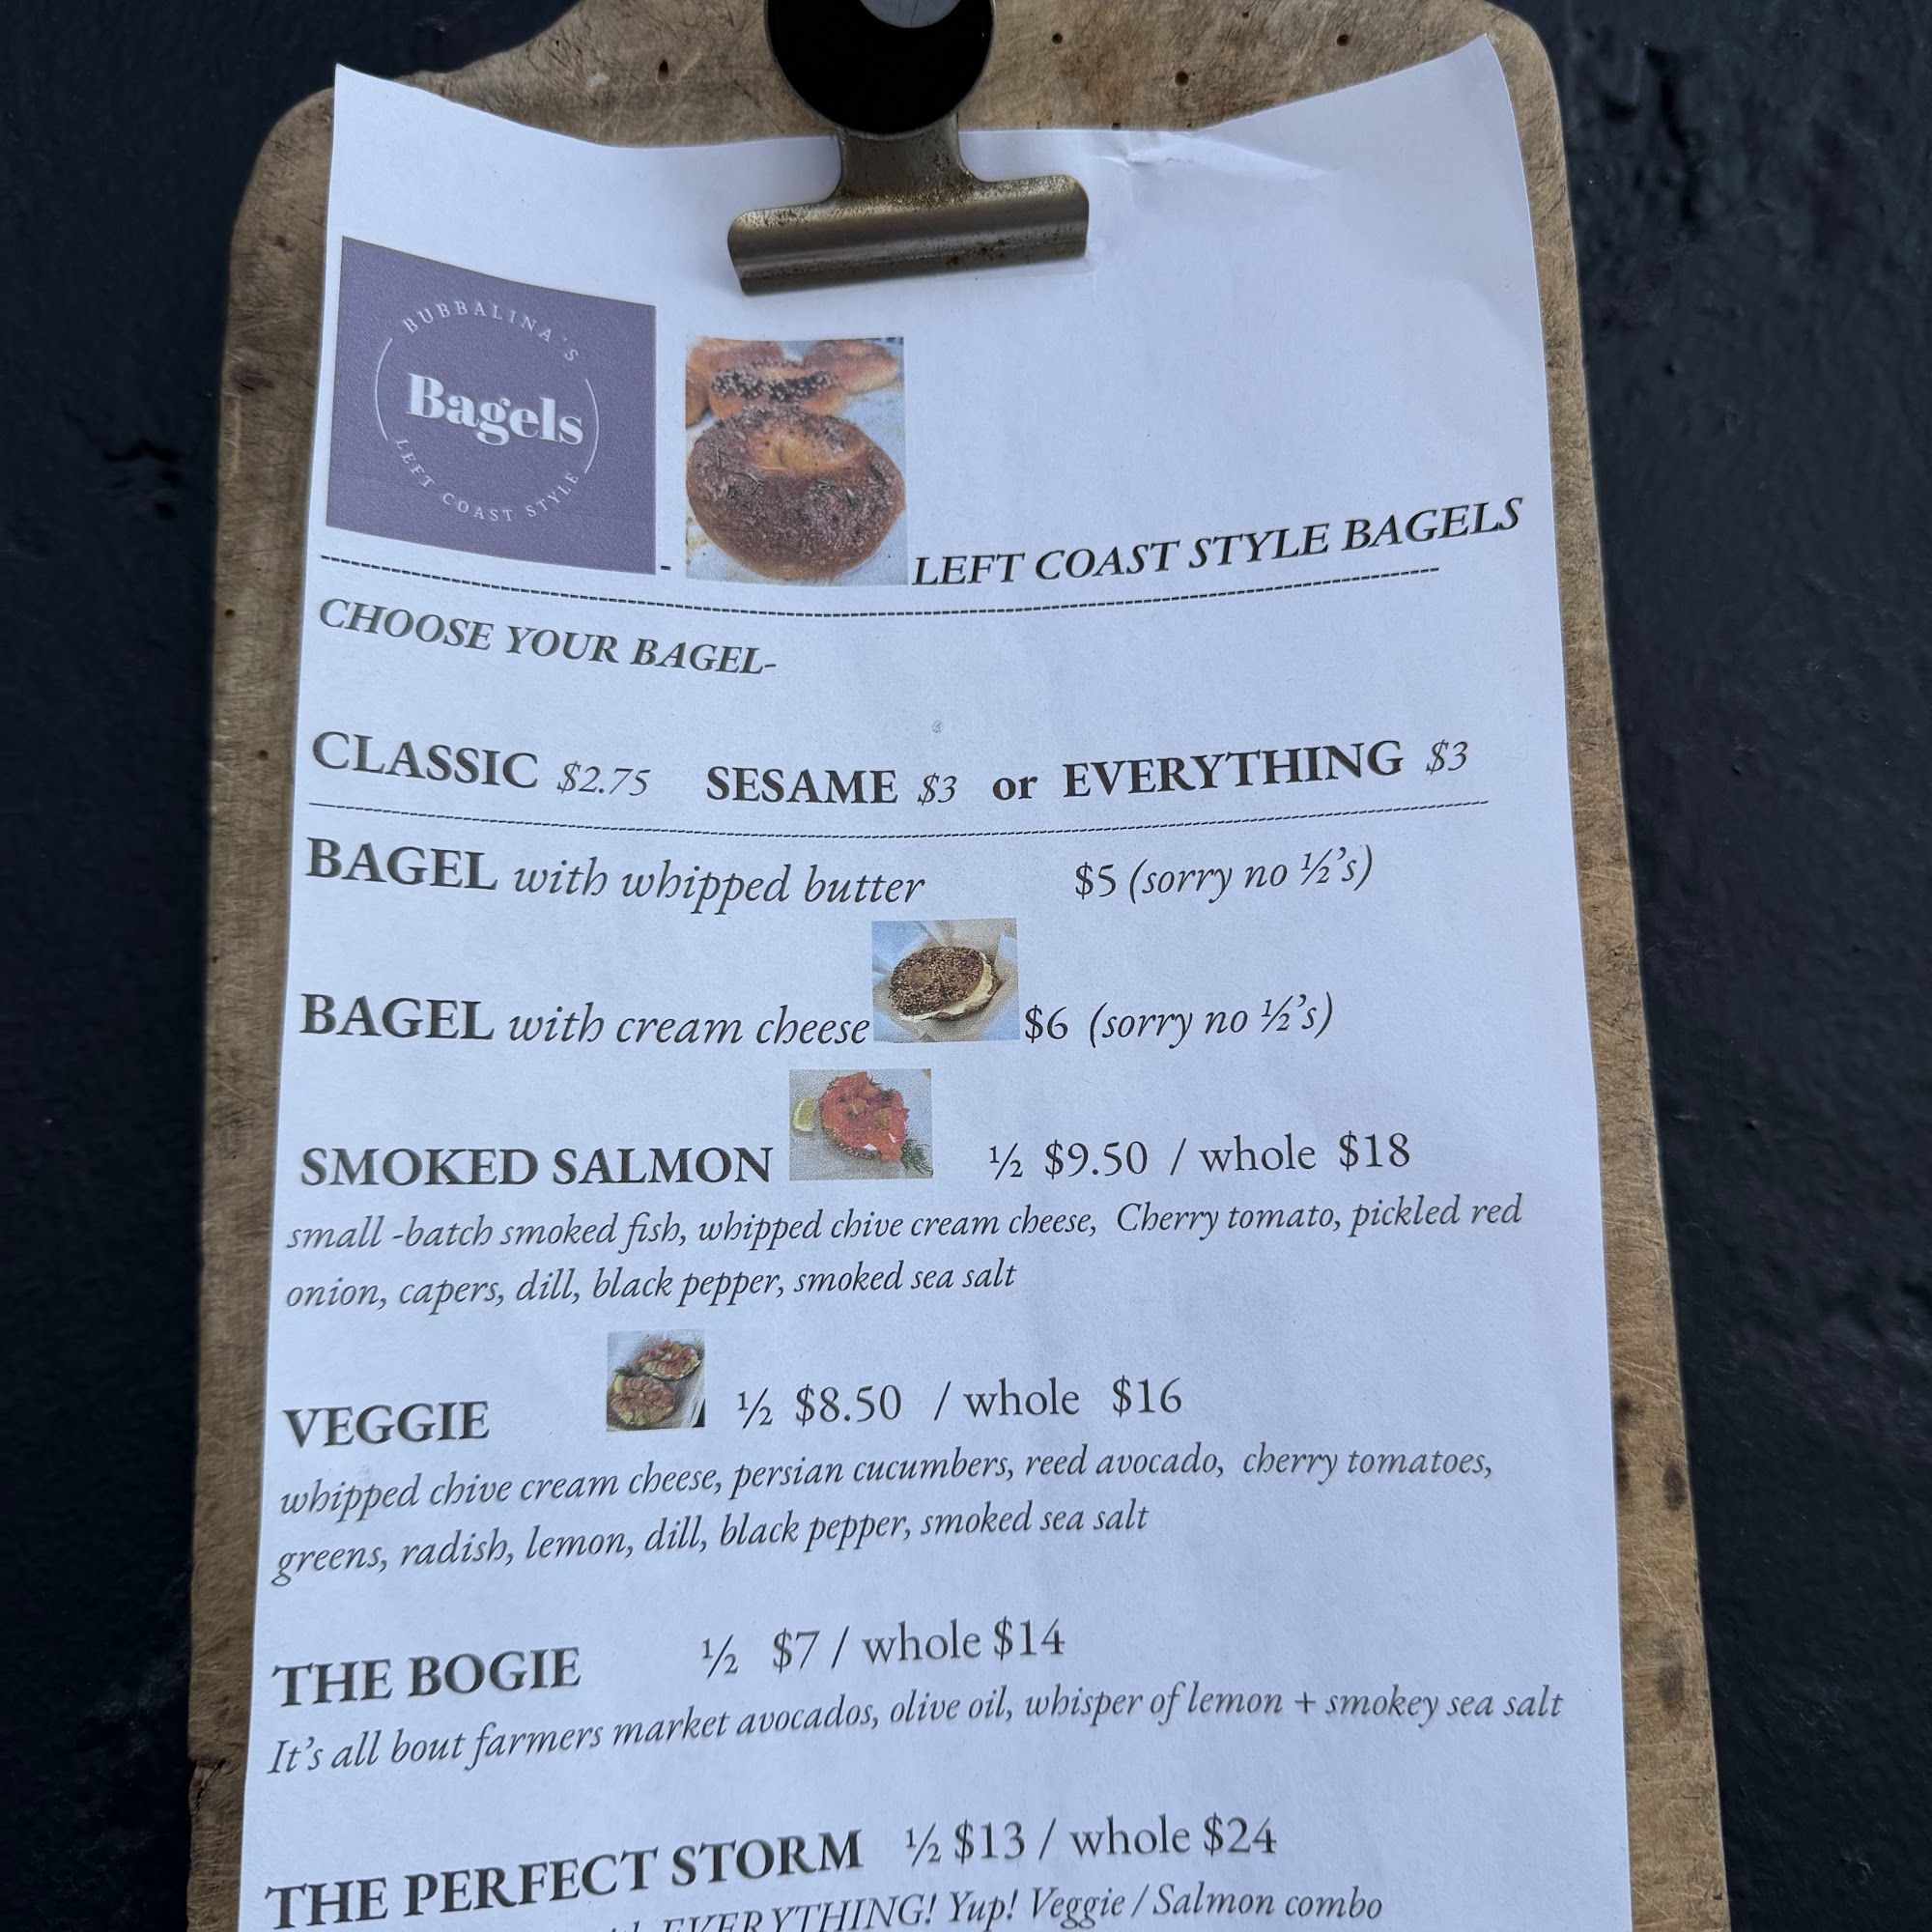 BUBBALINA'S
Bagels
LEFT COAST STYLE
- LEFT COAST STYLE BAGELS
CHOOSE YOUR BAGEL-
CLASSIC $2.75 SESAME $3 or EVERYTHING $3
BAGEL with whipped butter $5 (sorry no ½'s)
BAGEL with cream cheese $6 (sorry no ½'s)
SMOKED SALMON ½ $9.50 / whole $18
small -batch smoked fish, whipped chive cream cheese, Cherry tomato, pickled red
onion, capers, dill, black pepper, smoked sea salt
VEGGIE ½ $8.50 / whole $16
whipped chive cream cheese, persian cucumbers, reed avocado, cherry tomatoes,
greens, radish, lemon, dill, black pepper, smoked sea salt
THE BOGIE ½ $7 / whole $14
It's all bout farmers market avocados, olive oil, whisper of lemon + smokey sea salt
THE PERFECT STORM ½ $13 / whole $24
EVERYTHING! Yup! Veggie / Salmon combo